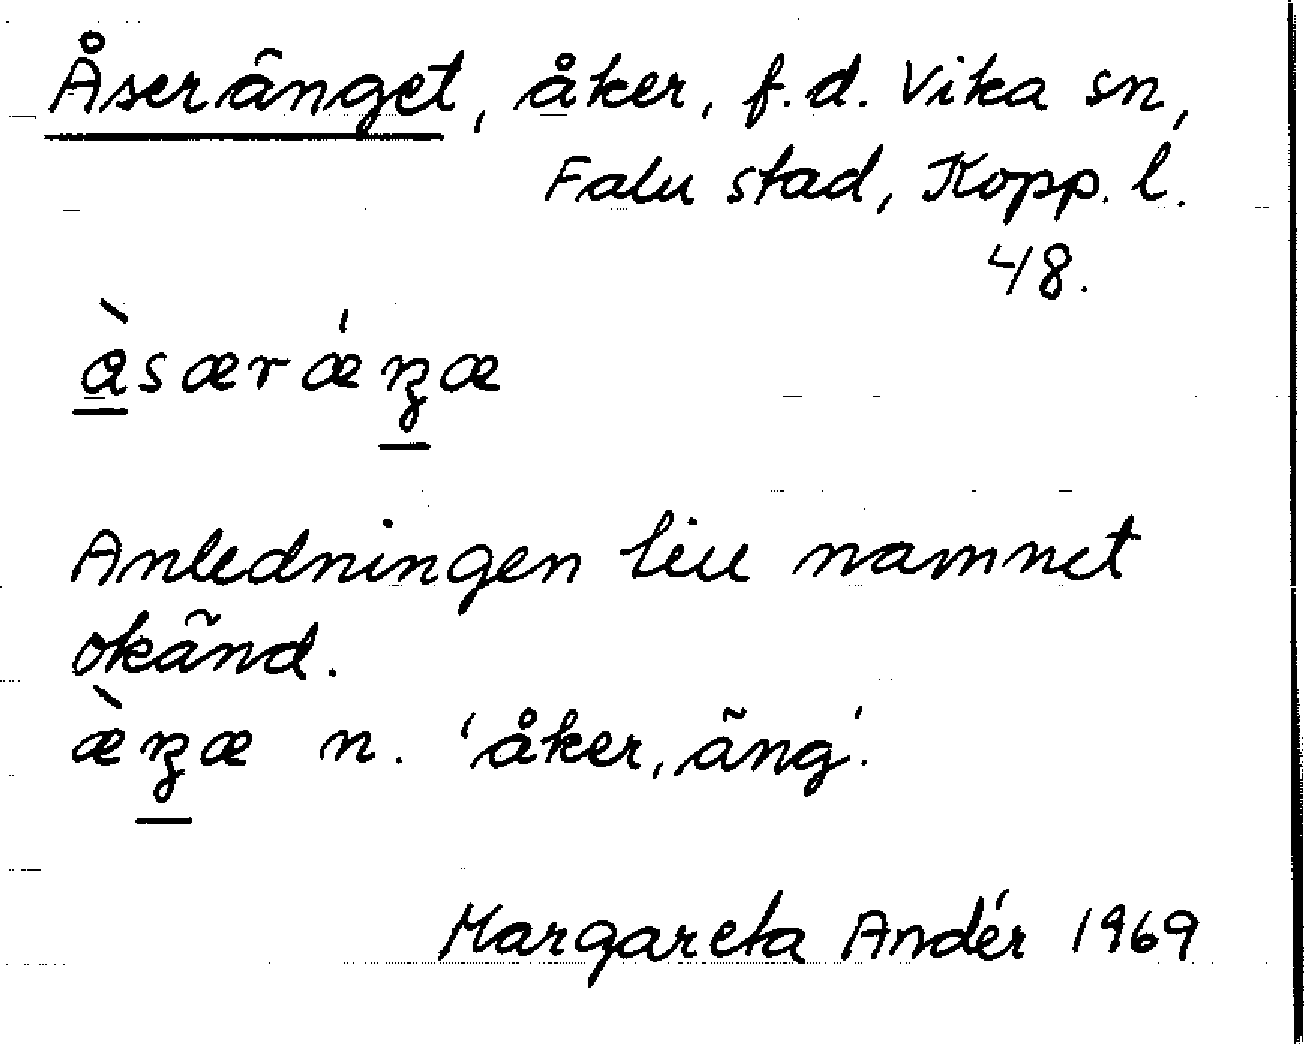 Åseränget, åker, f.d. Vika sn,
Falu stad, Kopp. l.
48.
àsærǽŋæ
Anledningen till namnet
okänd.
æ̀ŋæ n. 'åker, äng'.
Margareta Andér 1969